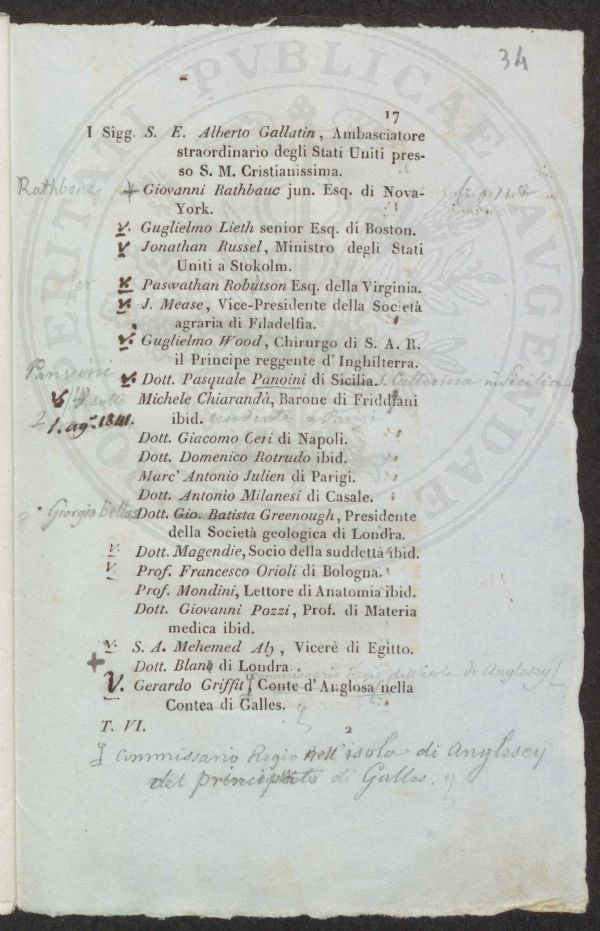 34
17
I Sigg. S. E. Alberto Gallatin, Ambasciatore
straordinario degli Stati Uniti pres-
so S. M. Cristianissima.
Rathbone + Giovanni Rathbauc jun. Esq. di Nova-
York.
v. Guglielmo Lieth senior Esq. di Boston.
v. Jonathan Russel, Ministro degli Stati
Uniti a Stokolm.
v. Paswathan Robutson Esq. della Virginia.
v. J. Mease, Vice-Presidente della Società
agraria di Filadelfia.
v. Guglielmo Wood, Chirurgo di S. A. R.
il Principe reggente d'Inghilterra.
Panvini v. Dott. Pasquale Panoini di Sicilia. S. Catterina in Sicilia
v. Michele Chiarandà, Barone di Friddiani
1. ag. 1841. ibid. residente a Parigi
Dott. Giacomo Ceri di Napoli.
Dott. Domenico Rotrudo ibid.
Marc' Antonio Julien di Parigi.
Dott. Antonio Milanesi di Casale.
Giorgio Bellas Dott. Gio. Batista Greenough, Presidente
della Società geologica di Londra.
v. Dott. Magendie, Socio della suddetta ibid.
v. Prof. Francesco Orioli di Bologna.
Prof. Mondini, Lettore di Anatomia ibid.
Dott. Giovanni Pozzi, Prof. di Materia
medica ibid.
v. S. A. Mehemed Aly, Vicerè di Egitto.
+ Dott. Blane di Londra.
Commissario Regio dell'isola di Anglesey
V. Gerardo Griffit Conte d'Anglosa nella
Contea di Galles.
T. VI. 2
Commissario Regio nell'isola di Anglesey
del principato di Galles.
PUBLICAE
VERITATI
AUGENDAE